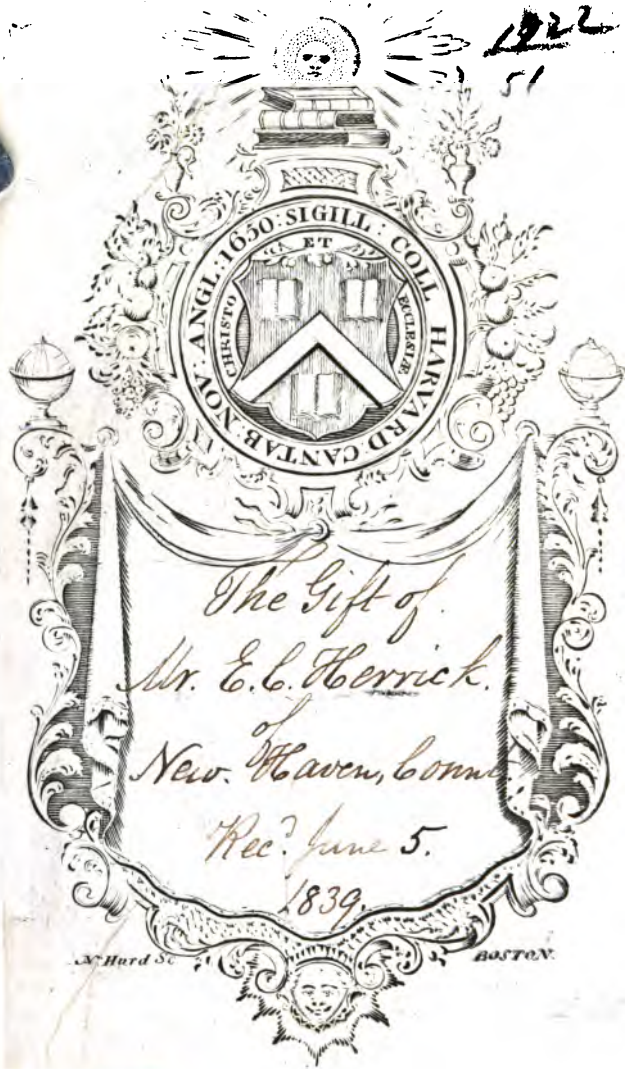 1922
51
SIGILL : COLL HARVARD CANTAB NOV ANGL 1650
ET
CHRISTO
ECCLESIÆ
The Gift of
Mr. E. C. Herrick.
of
New. Haven, Conn.
Recd. June 5.
1839.
N. Hurd Sc
BOSTON.